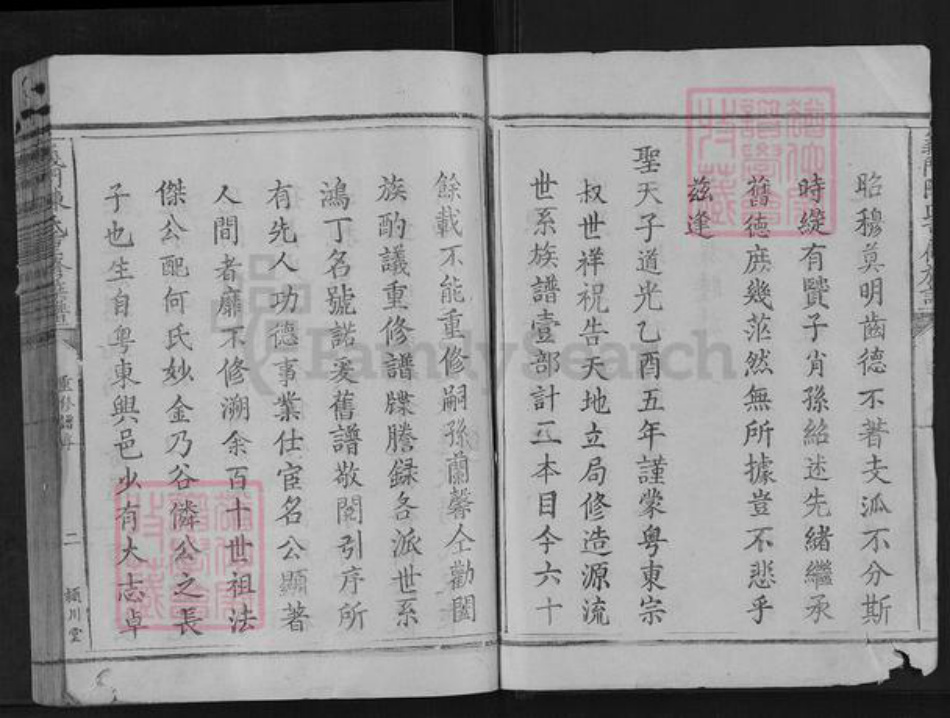 昭穆莫明齒德不著支泒不分斯
時縱有賢子肖孫紹述先緒繼承
舊德庶幾茫然無所據豈不悲乎
兹逢
聖天子道光乙酉五年謹蒙粤東宗
叔世祥祝告天地立局修造源流
世系族譜壹部計三本目今六十
餘載不能重修嗣孫蘭馨仝勸闔
族酌議重修譜牒謄録各派世系
鴻丁名號諾爰舊譜敬閱引序所
有先人功德事業仕宦名公顯著
人間者靡不修溯余百十世祖法
傑公配何氏妙金乃谷憐公之長
子也生自粤東興邑少有大志卓
重修譜序
二
潁川堂
FamilySearch